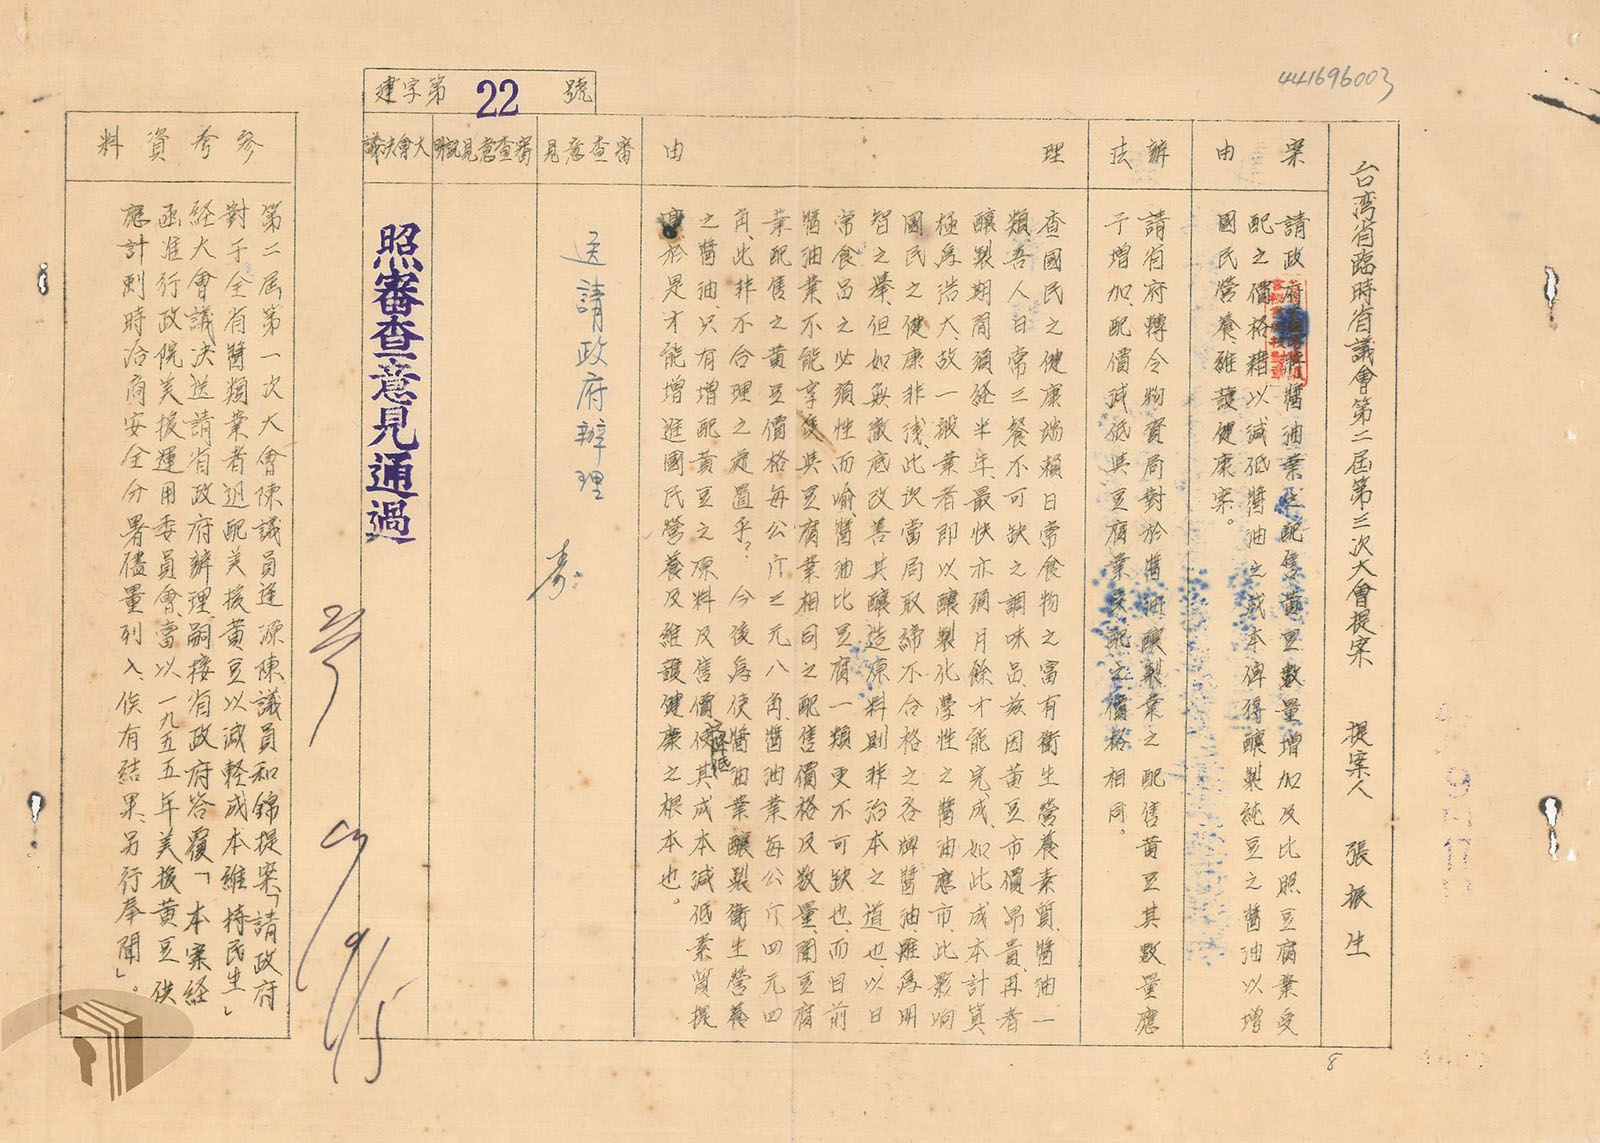 441696003
建字第 22 號
台湾省臨時省議會第二屆第三次大會提案　提案人　張振生
案由
請政府
將醬油業之配售黃豆數量增加及比照豆腐業受
配之價格藉以減低醬油之成本俾得釀製純豆之醬油以增
國民營養、維護健康案。
辦法
請省府轉令物資局對於醬油釀製業之配售黃豆其數量應
予增加、配價減低與豆腐業受配之價格相同。
理由
查國民之健康端賴日常食物之富有衛生營養素質、醬油一
類、吾人日常三餐不可缺之調味品、茲因黃豆市價昂貴、再者
釀製期間須經半年、最快亦須月餘才能完成、如此成本計算
極為浩大、故一般業者即以釀製化學性之醬油應市、此影响
國民之健康非浅、此次當局取締不合格之各牌醬油、雖為明
智之舉、但如無澈底改善其釀造原料則非治本之道也、以日
常食品之必須性而喻、醬油比豆腐一類更不可缺也、而目前
醬油業不能享受與豆腐業相同之配售價格及数量、聞豆腐
業配售之黃豆價格每公斤三元八角、醬油業每公斤四元四
角、此非不合理之處置乎？今後為使醬油業釀製衛生營養
之醬油、只有增配黃豆之原料及售價
降低
使其成本減低素質提
高、於是才能增進國民營養及維護健康之根本也。
審查意見
送請政府辦理
審查意見說明
大會決議
照審查意見通過
9/15
參考資料
第二屆第一次大會陳議員逢源陳議員和錦提案「請政府
對于全省醬類業者迅配美援黃豆以減輕成本維持民生」
経大會議決送請省政府辦理嗣接省政府答覆「本案経
函准行政院美援運用委員會當以一九五五年美援黃豆供
應計劃時洽商安全分署儘量列入、俟有結果、另行奉聞」。
9
17
8